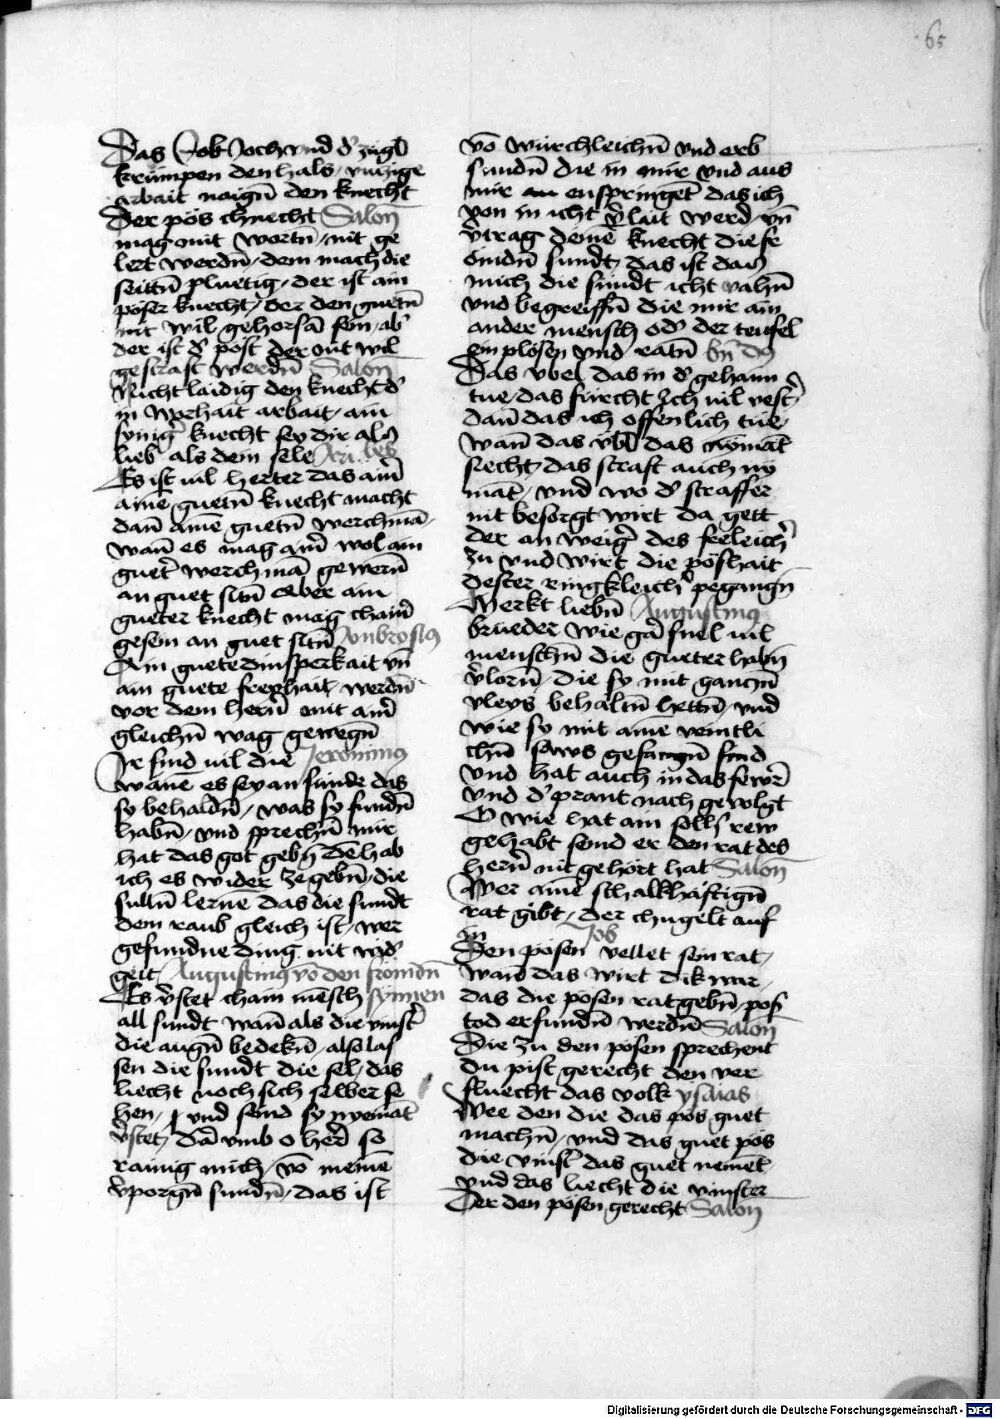 65
Das Job Joch und d' zugl
krumpen den hals, unzige
arbait naign̄ den knecht
Der pös chnecht Salon̄
mag mit wortn̄, nit ge
lert werdn̄, dem mach die
seittn̄ pluetig, der ist ain
pöser knecht, der den guetn̄
nit wil gehorsā sein, ab'
der ist d' pöst der nit wil
gestraft werdn̄ Salon̄
Nicht laidig den knecht d'
in worhait arbait, ain
synig' knecht sey dir als
lieb als dein sele
Es ist vil herter das ain̄
aine guetn̄ knecht macht
dan̄ aine guetn̄ werchmā,
wan̄ es mag ain̄ wol ain
guet' werchmā gewern̄
an guet sitn̄ Aber ain
gueter knecht mag chain̄
gesein an guet sitn̄ Ambrosius
Ain guete dinsperkait vn̄
ain guete freyhait, werdn̄
vor dem hern̄ mit ain̄
gleichn̄ wag gewegn̄
Ir sind vil die Jeronimus
wänē es sey an sünde das
sy behaldn̄, was sy fundn̄
habn̄, und sprechn̄ mir
hat das got gebn̄ dē hab
ich es wider ze gebn̄, die
sulln̄ lernē das die sundt
dem raub gleich ist, wer
gefundne ding nit wid'
geit Augustinus vō den fromdn̄
Es v'stet chain mēsch synnen
all sundt wan̄ als die vinst'
die augn̄ bedekn̄, also las
sen die sundt die sel, das
liecht noch sich selber se
hen, und seind sy nyemāt
v'stet, dā vmb o her' so
rainig mich, vō meinē
v'porgn̄ sundn̄, das ist
vō würchleichn̄ und erb
sundn̄ die in mir und aus
mir enspringet das ich
von in icht v'lait werd, vn̄
v'trag deinē knecht diese
ömdn̄ sundt, das ist das
mich die sündt icht vahn̄
und begreiffn̄ die mir ain
ander mensch od' der teufel
ein plösen und ratn̄ bn̄ dg
Das übel das in d' gehaim
tue, das fürcht ich vil vest'
dan̄ das ich offenlich tüe,
wan̄ das übl das nyomāt
siecht, das straft auch ny
māt, und wo d' straffer
nit besorgt wirt da gett
der an weig' des feeleich'
zu und wirt die pöshait
dester ringkleich' pegangn̄
Merkt liebn̄ Augustinus
brueder wie gar snel vil
menschn̄ die gueter habn̄
v'lorn̄, die sy mit ganczn̄
vleys behaltn̄ hettn̄, und
wie sy mit aine veintli
chn̄ saws gefangn̄ sind
Und hat auch in das fewr'
Und d' prant nach gevolgt
O wie hat ain sollh' rew
gehabt seind er den rat des
hern̄ nit gehört hat Salon̄
Wer ainē schalkhaftign̄
rat gibt, der chugelt auf
in Job
Den pösen vellet sein rat,
wan̄ das wirt dik war,
das die pösen ratgebn̄, pos'
tod erfundn̄ werdn̄ Salon̄
Die zu den pösen sprechent
du pist gerecht den ver
fluecht das volk ysaias
Wee den die das pös guet
machn̄, und das guet pös
die vinst' das guet nement,
und das liecht die vinster
Der den pösen gerecht Salon̄
Digitalisierung gefördert durch die Deutsche Forschungsgemeinschaft - DFG